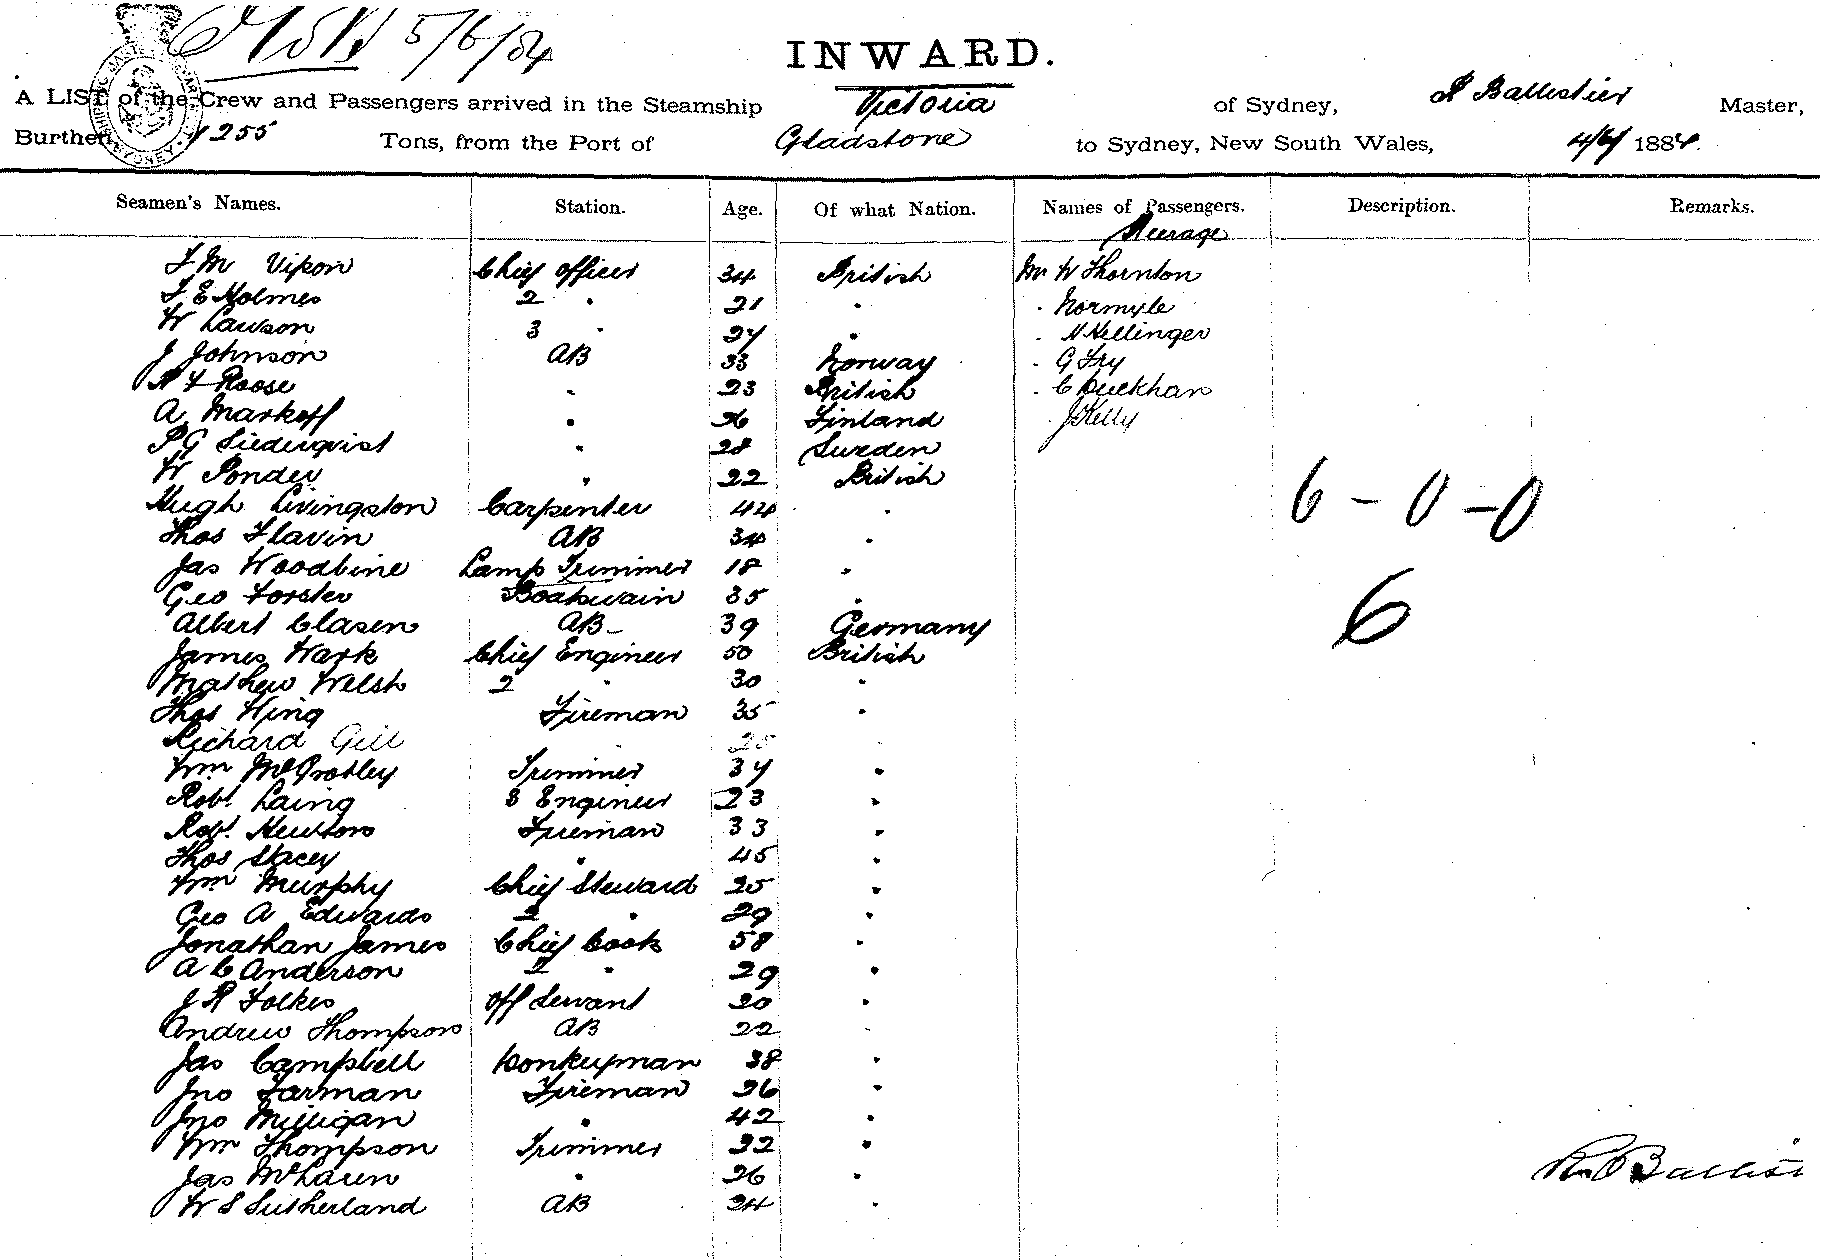 5/6/84
INWARD.
A LIST of the Crew and Passengers arrived in the Steamship Victoria of Sydney, R Ballistier Master,
Burthen 1255 Tons, from the Port of Gladstone to Sydney, New South Wales, 4/6/ 1884.
Seamen's Names. Station. Age. Of what Nation. Names of Passengers. Description. Remarks.
Steerage
Chief Officer 34 British Mr W Thornton
J E Holmes 2 " 21 " " Normyle
W Lawson 3 " 27 " " Hellinger
J Johnson AB 33 Norway " G Fry
Roose " 23 British " C
A Markoff " 26 Finland J Kelly
P G " 28 Sweden
W Ponder " 22 British
Hugh Livingston Carpenter 44 "
Thos Flavin AB 34 "
Jas Woodbine Lamp Trimmer 18 "
Geo Forster Boatswain 35 "
Albert Clasen AB 39 Germany
James Wark Chief Engineer 50 British
Mathew Welsh 2 " 30 "
Thos King Fireman 35 "
Richard Gill " 25 "
Wm Trimmer 37 "
Robt Laing 3 Engineer 23 "
Robt Newton Fireman 33 "
Thos Stacey " 45 "
Wm Murphy Chief Steward 25 "
Geo A Edwards 2 " 29 "
Jonathan James Chief Cook 58 "
A C Anderson 2 " 29 "
J R Folkes Off Servant 20 "
Andrew Thompson AB 22 "
Jas Campbell Donkeyman 38 "
Jno Farman Fireman 26 "
Jno Milligan " 42 "
Wm Thompson Trimmer 22 "
Jas McLaren " 26 "
W S Sutherland AB 24 "
6 - 0 - 0
6